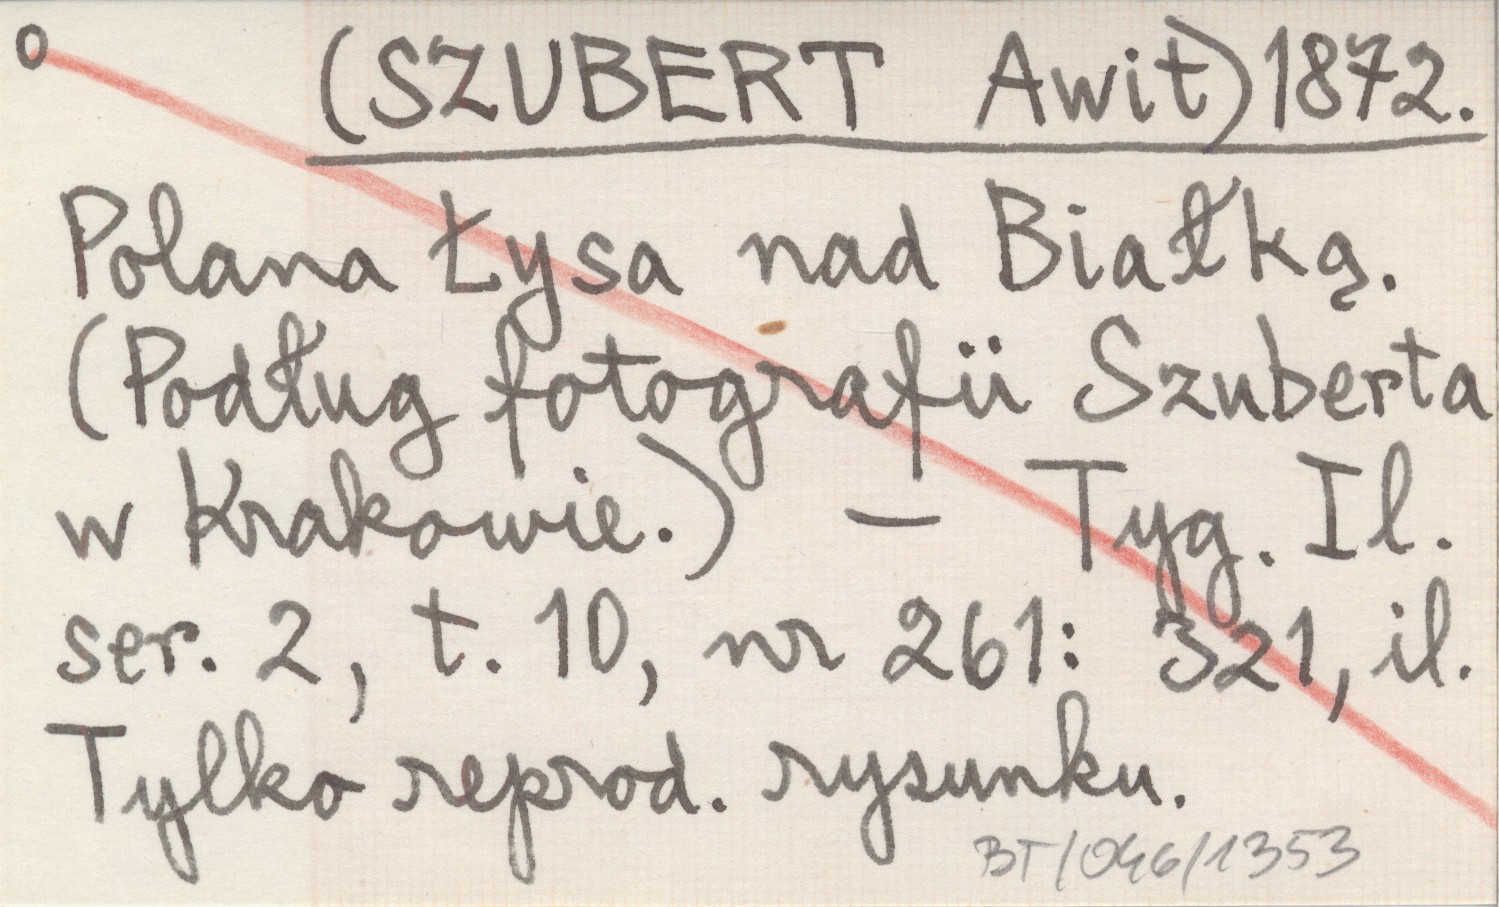 o (SZUBERT Awit) 1872.
Polana Łysa nad Białką.
(Podług fotografii Szuberta
w Krakowie.) — Tyg. Il.
ser. 2, t. 10, nr 261: 321, il.
Tylko reprod. rysunku.
BT/046/1353